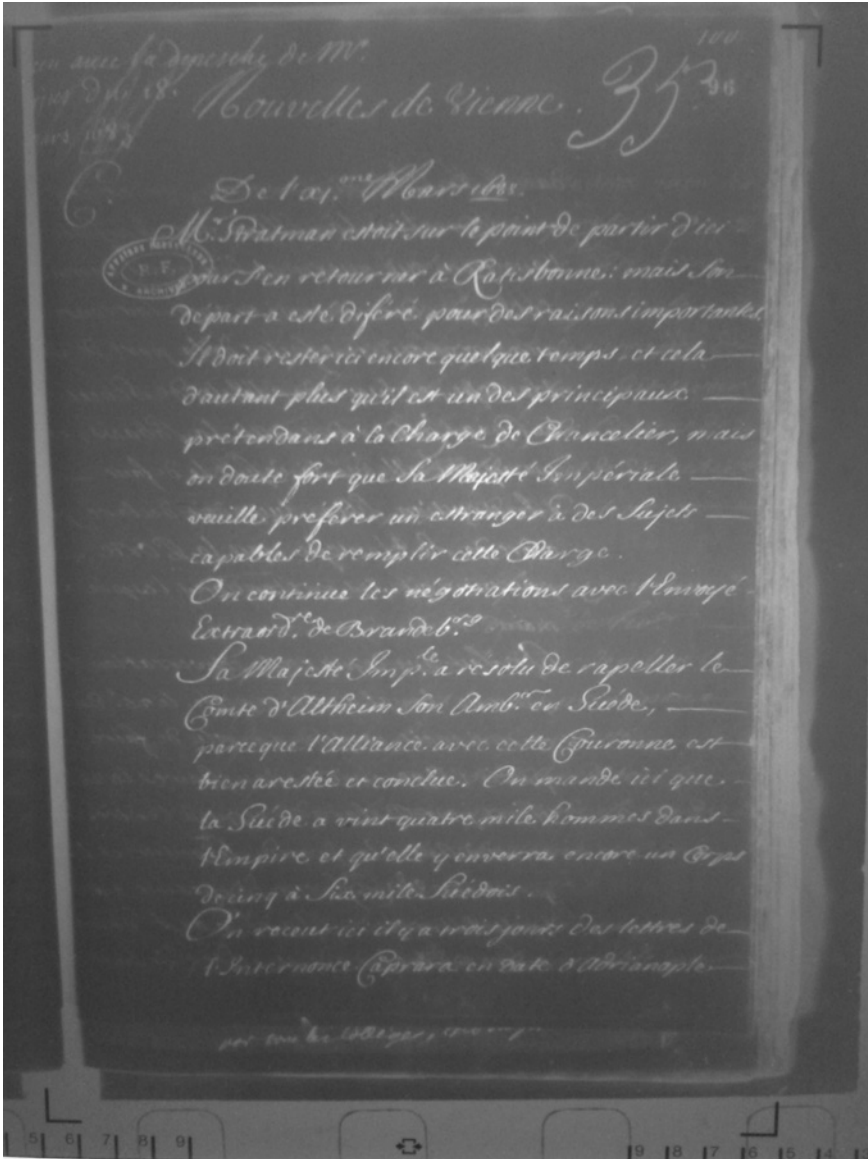 100
avec la depesche de Mr.
du 18.
Nouvelles de Vienne.
35
96
De l'xj.me Mars 1683.
Mr. Stratman estoit sur le point de partir d'ici
pour s'en retourner à Ratisbonne: mais son
depart a esté diféré pour des raisons importantes.
Il doit rester ici encore quelque temps, et cela
d'autant plus qu'il est un des principaux
prétendans à la Charge de Chancelier, mais
on doute fort que Sa Majesté Impériale
veuille préférer un estranger à des Sujets
capables de remplir cette Charge.
On continue les négotiations avec l'Envoyé
Extraord.re de Brandeb.g
Sa Majesté Imp.le a résolu de rapeller le
Comte d'Altheim son Amb.eur en Suéde,
parceque l'Alliance avec cette Couronne est
bien arestée et conclue. On mande ici que
la Suéde a vint quatre mile hommes dans
l'Empire et qu'elle y enverra encore un Corps
de cinq à six mile Suédois.
On receut ici il y a trois jours des lettres de
l'Internonce Caprara en date d'Adrianople
R.F.
5 6 7 8 9
9 8 7 6 5 4